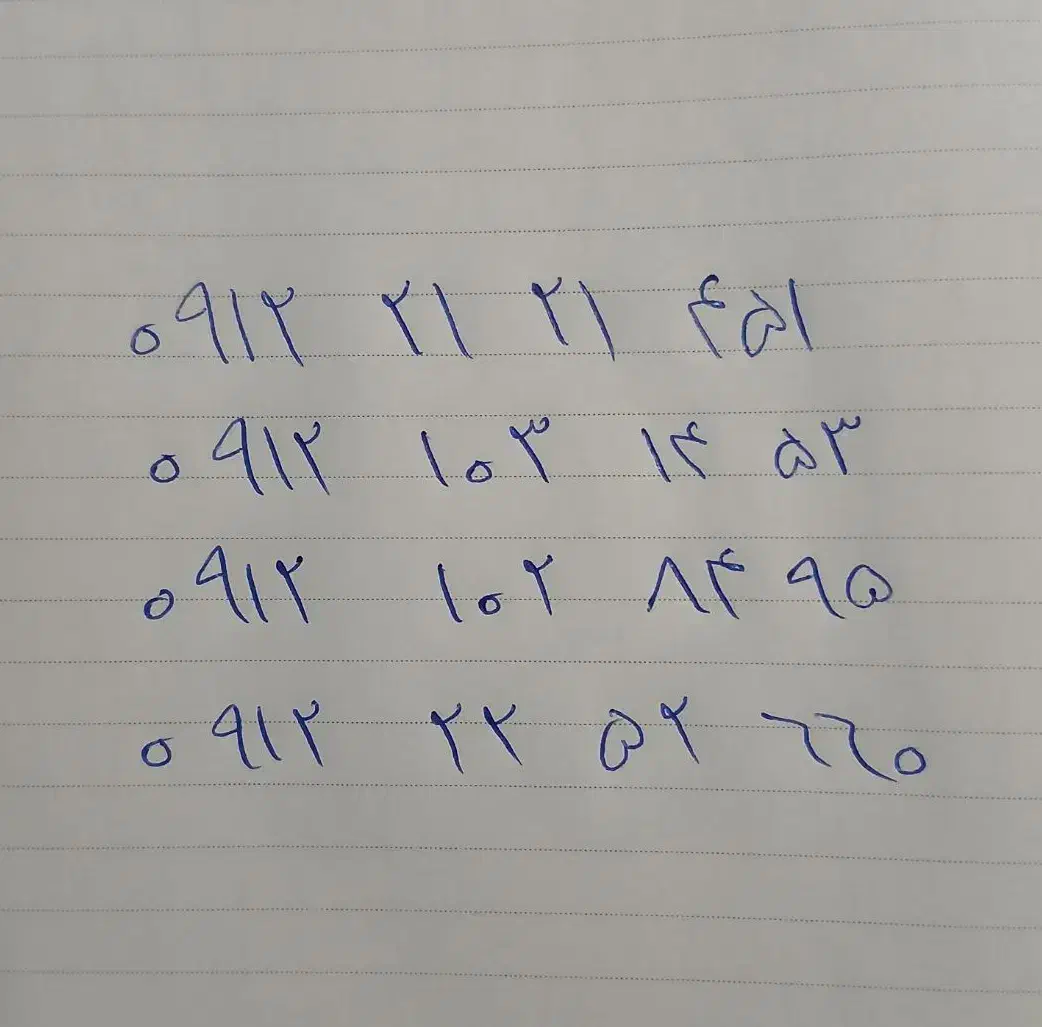 ۰۹۱۲ ۲۱ ۲۱ ۴۵۱
۰۹۱۲ ۱۰۳ ۱۴ ۵۳
۰۹۱۲ ۱۰۲ ۸۴ ۹۵
۰۹۱۲ ۲۲ ۵۲ ۶۶۰